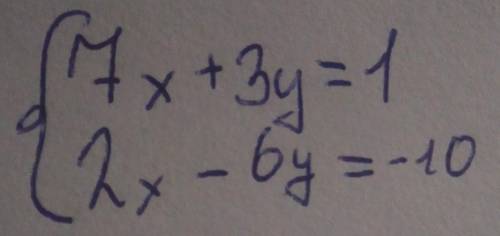 7x + 3y = 1
2x - 6y = -10